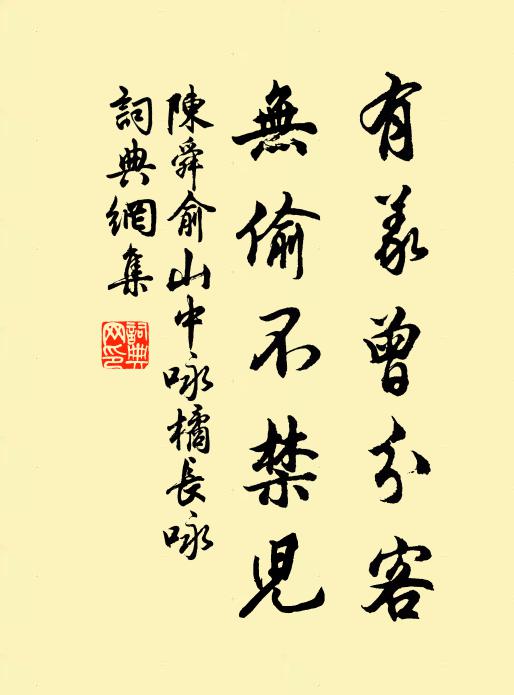 有義曾分客
無偷不禁兒
陳舜俞山中咏橘長咏
詞典網集
詞典
网印